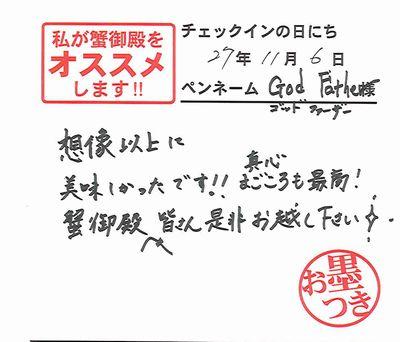 私が蟹御殿を
オススメ
します!!
チェックインの日にち
27年11月6日
ペンネーム God Father様
ゴッド ファーザー
想像以上に
美味しかったです!! まごころも最高!
真心
蟹御殿へ皆さん是非お越し下さい
お墨つき